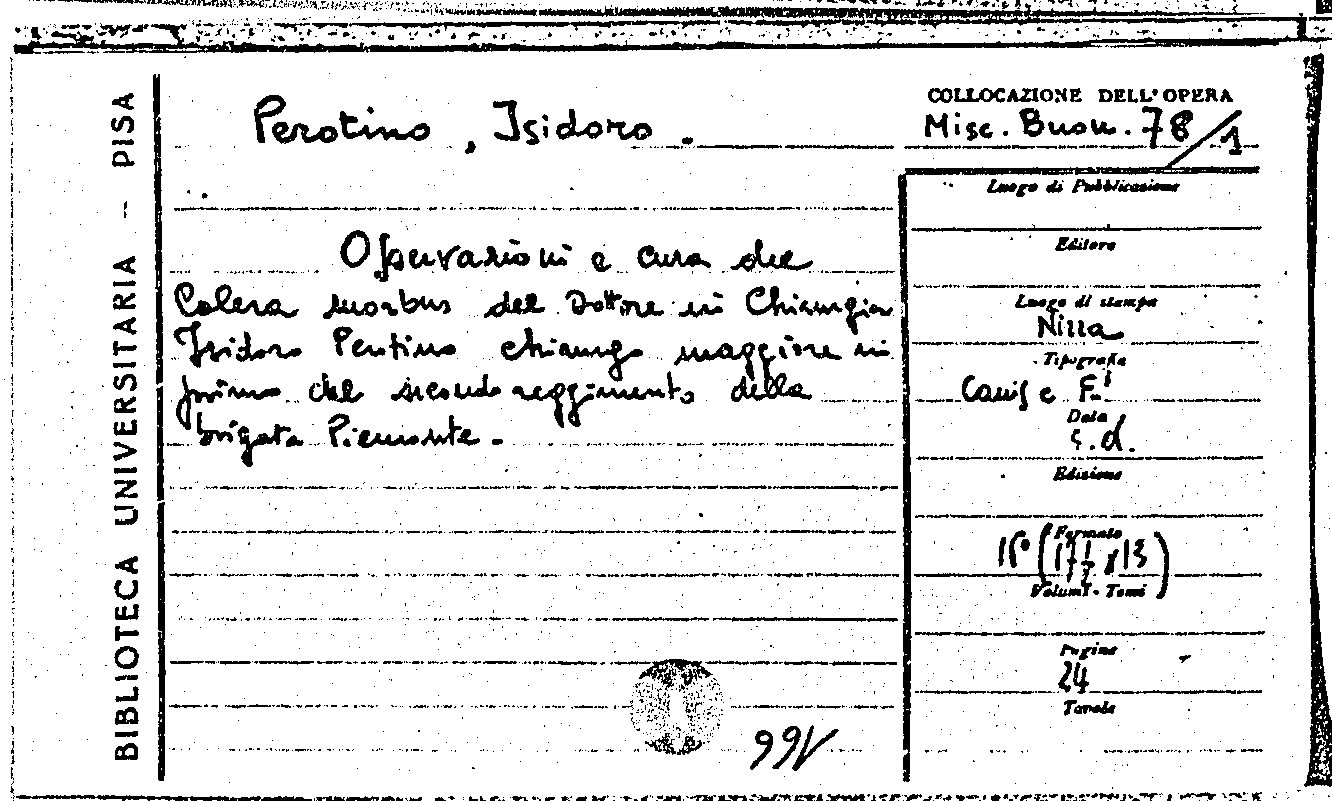 BIBLIOTECA UNIVERSITARIA - PISA
Perotino, Isidoro.
Osservazioni e cura del
Colera morbus del Dottore in Chirurgia
Isidoro Perotino chirurgo maggiore in
primo del secondo reggimento della
brigata Piemonte.
166
COLLOCAZIONE DELL'OPERA
Misc. Buon. 78/1
Luogo di Pubblicazione
Editore
Luogo di stampa
Nizza
Tipografia
e F.
Data
s.d.
Edizione
Formato
Volumi - Tomi
Pagine
24
Tavole